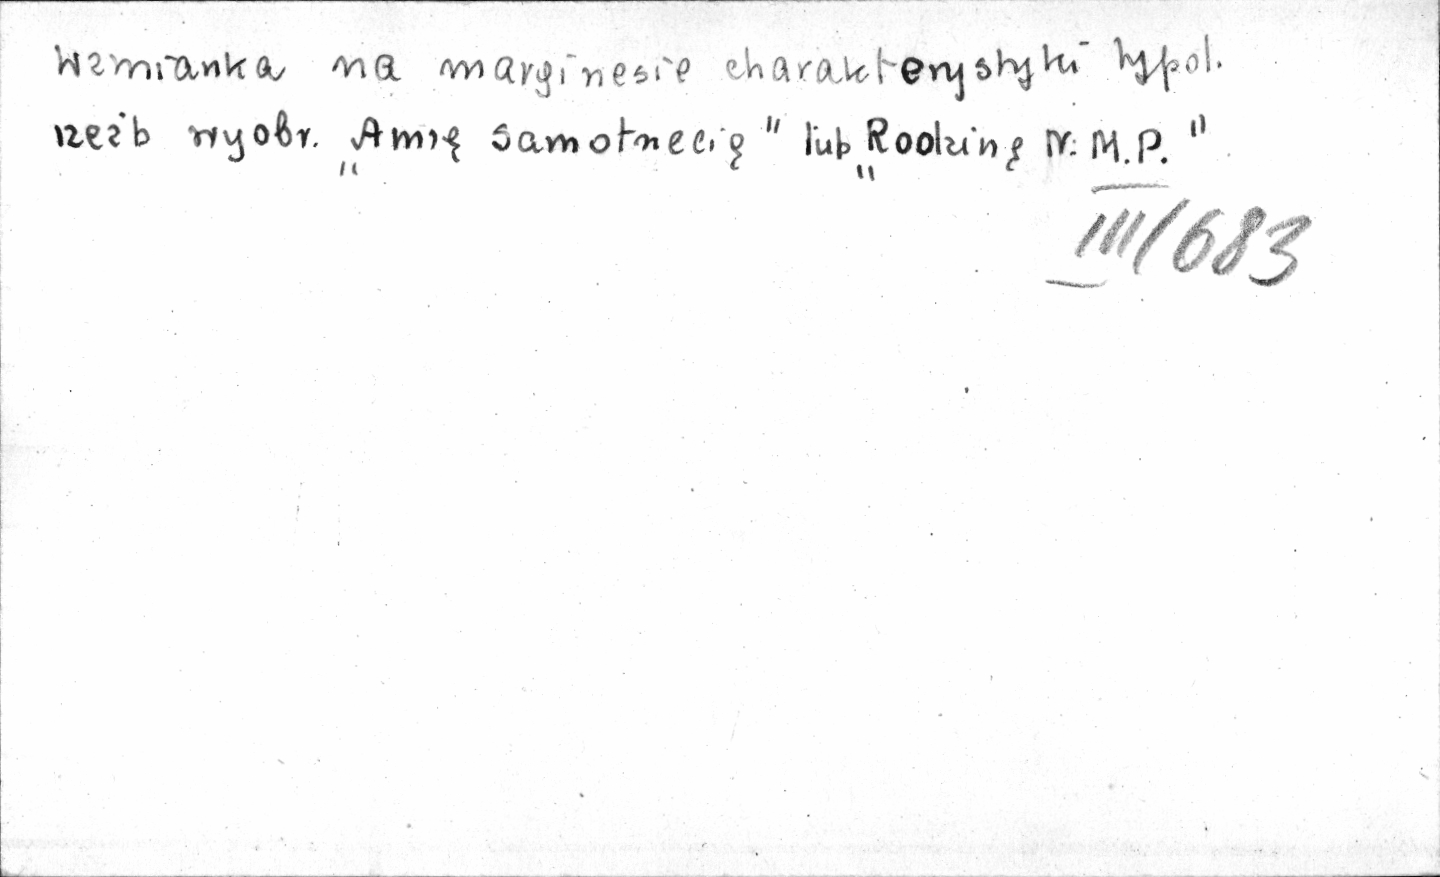 Wzmianka na marginesie charakterystyki typol.
rzeźb wyobr. „Annę samotrzecią" lub „Rodzinę N. M.P."
III/683